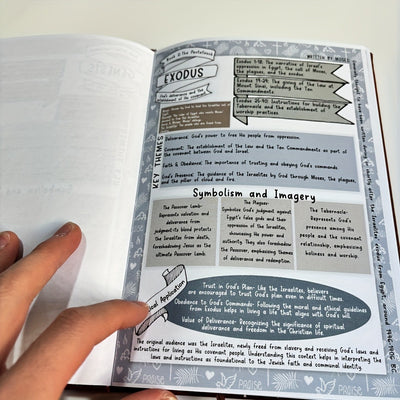 Book II: The Pentateuch
WRITTEN BY: MOSES
EXODUS
God's deliverance and the
establishment of the covenant.
Exodus 1-18: The narrative of Israel's
oppression in Egypt, the call of Moses,
the plagues, and the exodus.
Exodus 19-24: The giving of the law at
Mount Sinai, including the Ten
Commandments.
Exodus 25-40: Instructions for building the
Tabernacle and the establishment of
worship practices.
KEY THEMES
Deliverance: God's power to free His people from oppression.
Covenant: The establishment of the Law and the Ten Commandments as part of
the covenant between God and Israel.
Faith & Obedience: The importance of trusting and obeying God's commands.
God's Presence: The guidance of the Israelites by God through Moses, the plagues,
and the pillar of cloud and fire.
Symbolism and Imagery
The Passover Lamb-
Represents salvation and
deliverance from
judgment-its blood protects
the Israelites from death,
foreshadowing Jesus as the
ultimate Passover Lamb.
The Plagues-
Symbolize God's judgment against
Egypt's false gods and the
oppression of the Israelites,
showcasing His power and
authority. They also foreshadow
the Passover, emphasizing themes
of deliverance and redemption.
The Tabernacle-
Represents God's
presence among His
people and the covenant
relationship, emphasizing
holiness and worship.
Application
Trust in God's Plan: Like the Israelites, believers
are encouraged to trust God's plan even in difficult times.
Obedience to God's Commands: Following the moral and ethical guidelines
from Exodus helps in living a life that aligns with God's will.
Value of Deliverance: Recognizing the significance of spiritual
deliverance and freedom in the Christian life.
The original audience was the Israelites, newly freed from slavery and receiving God's laws and
instructions for living as His covenant people. Understanding this context helps in interpreting the
laws and instructions as foundational to the Jewish faith and communal identity.
PRAISE
PRAISE